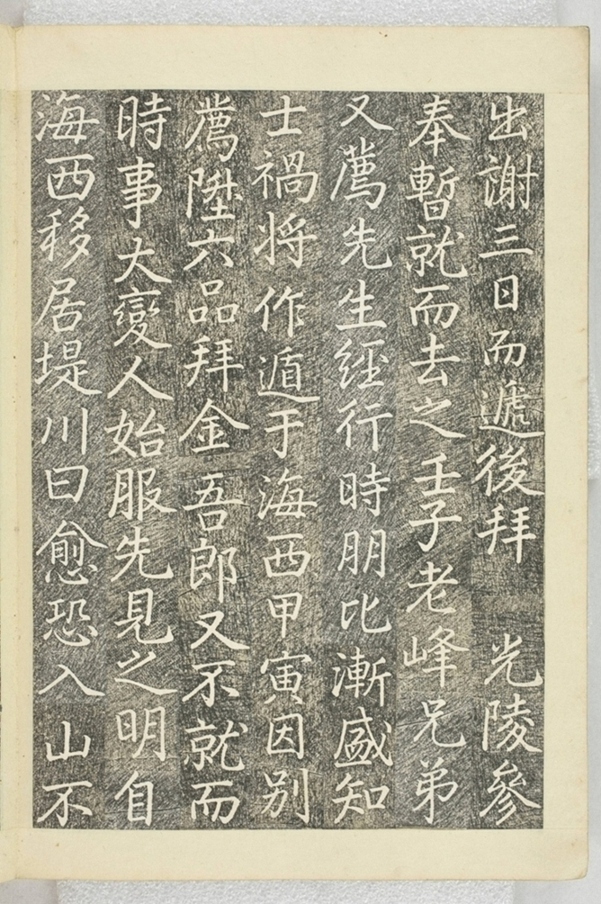 出謝三日而遞後拜　光陵參
奉暫就而去之壬子老峰兄弟
又薦先生經行時朋比漸盛知
士禍將作遁于海西甲寅因別
薦陞六品拜金吾郎又不就而
時事大變人始服先見之明自
海西移居堤川曰愈恐入山不